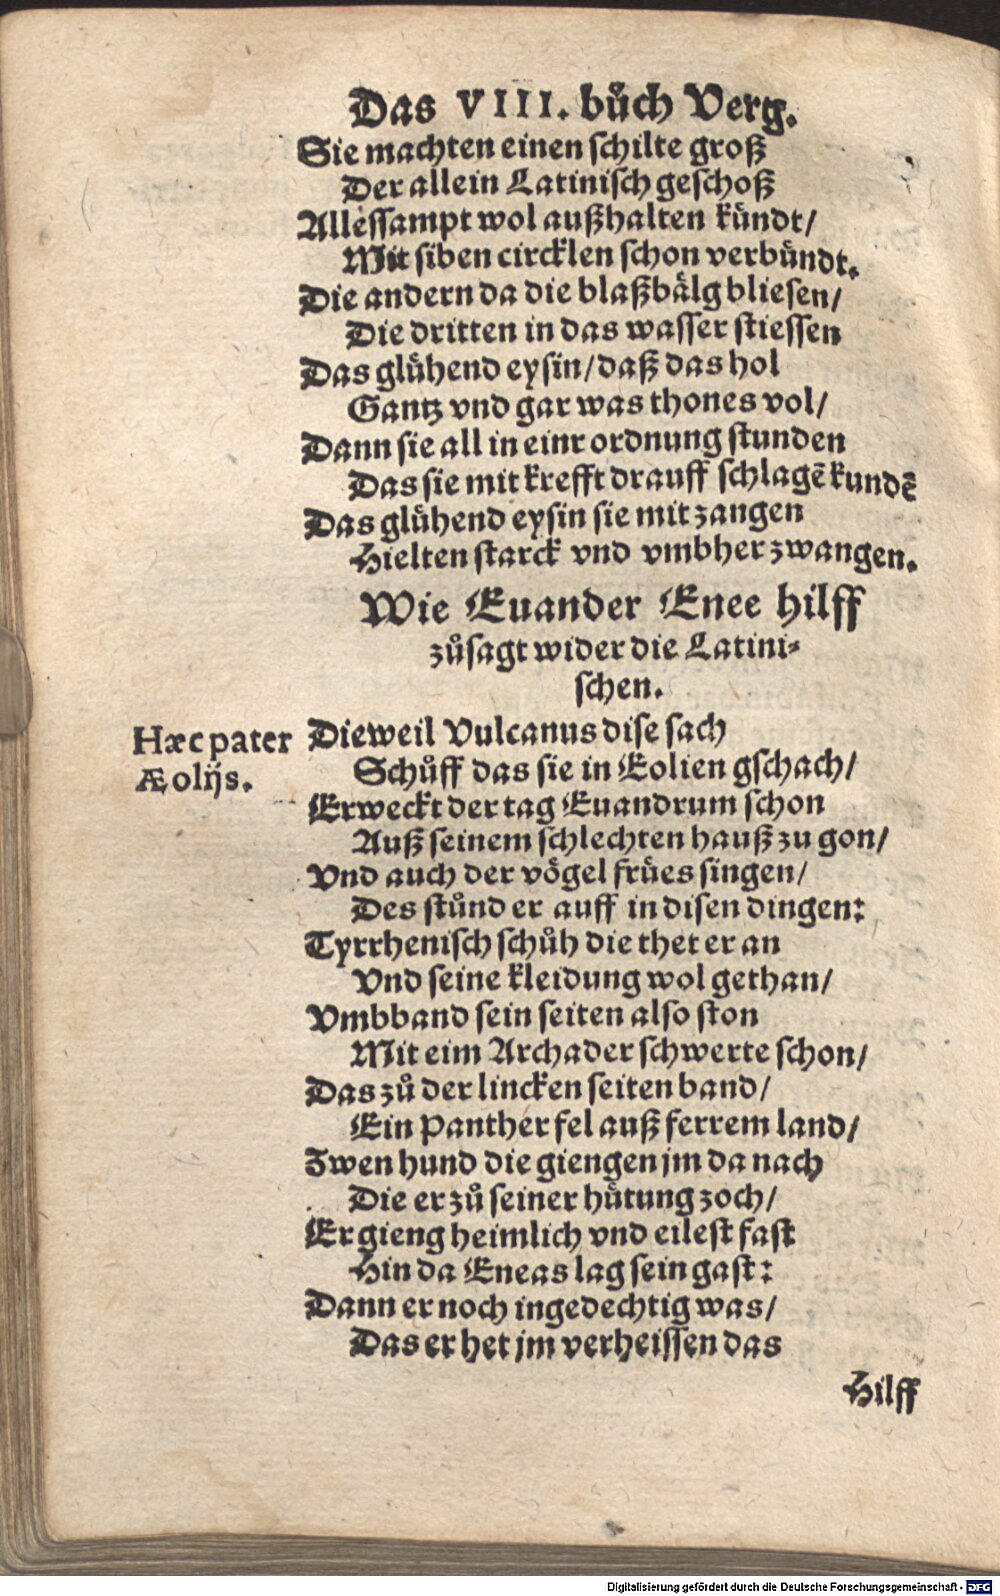 Das VIII. bůch Verg.
Sie machten einen schilte groß
Der allein Latinisch geschoß
Allessampt wol außhalten kündt/
Mit siben circklen schon verbündt.
Die andern da die blaßbälg bliesen/
Die dritten in das wasser stiessen
Das glühend eysin/daß das hol
Gantz vnd gar was thones vol/
Dann sie all in einr ordnung stunden
Das sie mit krefft drauff schlagē kundē
Das glühend eysin sie mit zangen
Hielten starck vnd vmbher zwangen.
Wie Euander Enee hilff
zůsagt wider die Latini-
schen.
Hæc pater
Æolijs.
Dieweil Vulcanus dise sach
Schůff das sie in Eolien gschach/
Erweckt der tag Euandrum schon
Auß seinem schlechten hauß zu gon/
Vnd auch der vögel frües singen/
Des stůnd er auff in disen dingen:
Tyrrhenisch schůh die thet er an
Vnd seine kleidung wol gethan/
Vmbband sein seiten also ston
Mit eim Archader schwerte schon/
Das zů der lincken seiten band/
Ein Panther fel auß ferrem land/
Zwen hund die giengen jm da nach
Die er zů seiner hütung zoch/
Er gieng heimlich vnd eilest fast
Hin da Eneas lag sein gast:
Dann er noch ingedechtig was/
Das er het jm verheissen das
Hilff
Digitalisierung gefördert durch die Deutsche Forschungsgemeinschaft - DFG